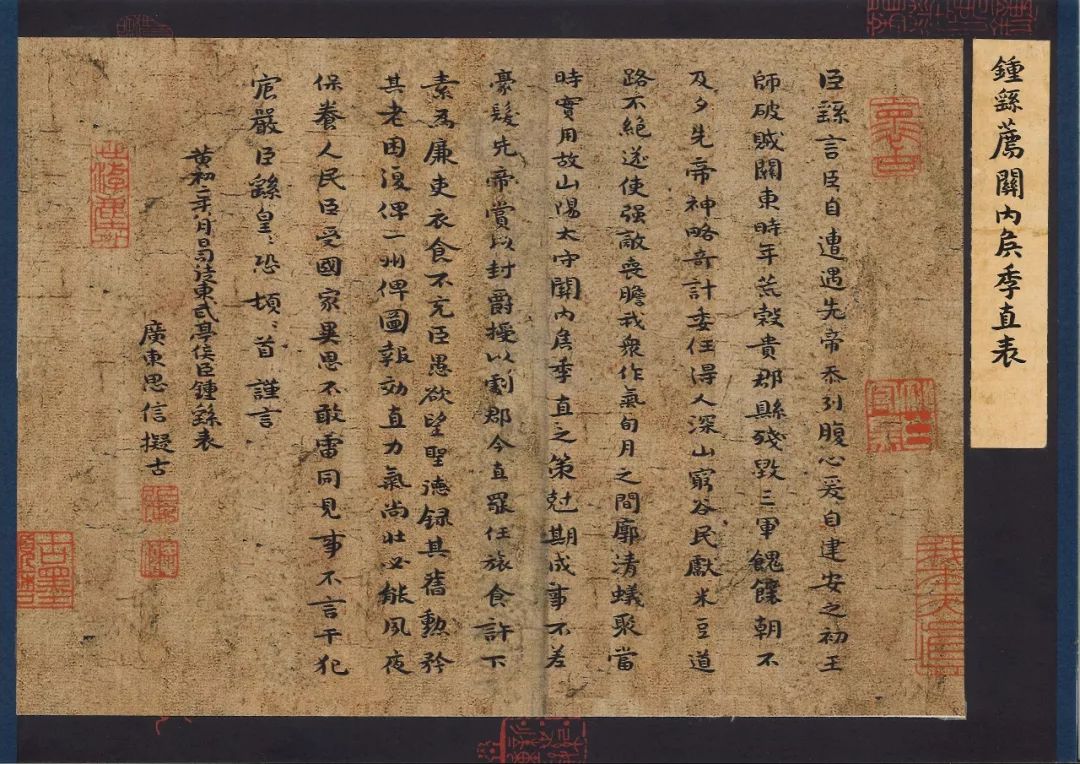 鍾繇薦關內侯季直表
臣繇言臣自遭遇先帝忝列腹心爰自建安之初王
師破賊關東時年荒穀貴郡縣殘毀三軍餽饟朝不
及夕先帝神略奇計委任得人深山窮谷民獻米豆道
路不絕遂使强敵喪膽我衆作氣旬月之間廓清蟻聚當
時實用故山陽太守關內侯季直之策尅期成事不差
豪髮先帝賞以封爵授以劇郡今直罷任旅食許下
素爲廉吏衣食不充臣愚欲望聖德録其舊勳矜
其老困復俾一州俾圖報効直力氣尚壯必能夙夜
保養人民臣受國家異恩不敢雷同見事不言干犯
宸嚴臣繇皇々恐頓々首謹言
黃初二年八月日司徒東武亭侯臣鍾繇表
廣東思信擬古